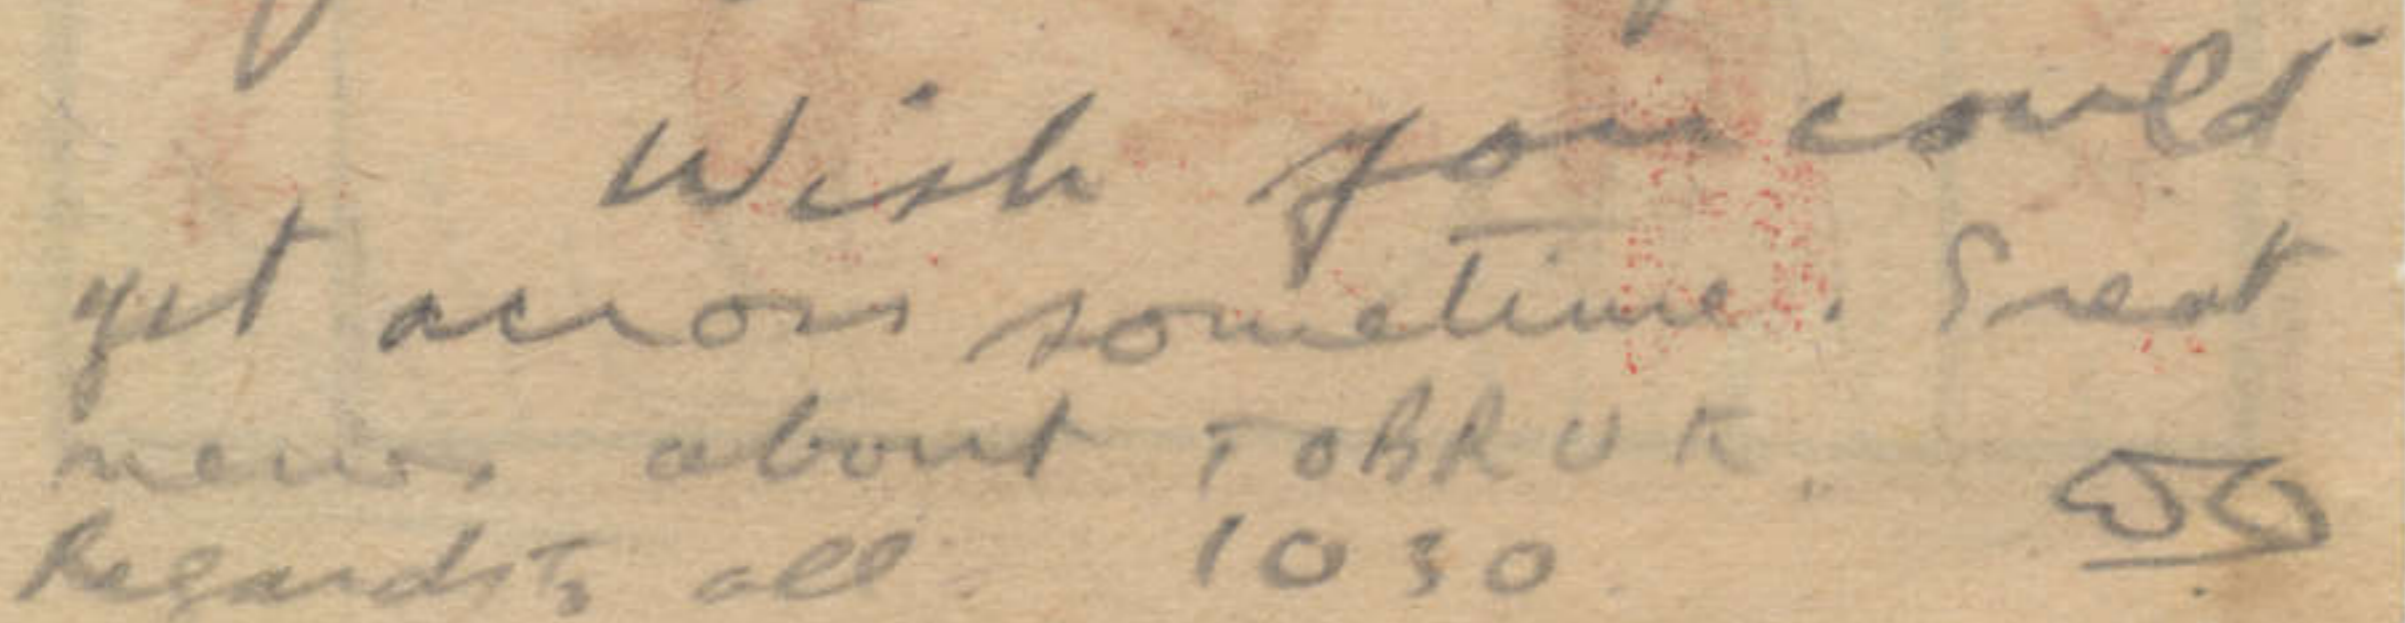 Wish you could
get across sometime. Great
news about TOBRUK.
Regards to all. 1030